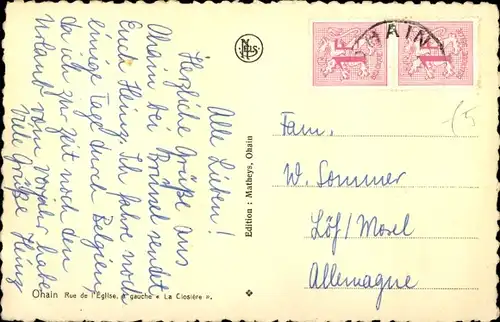 Alle Lieben!
Herzliche Grüße aus
Ohain bei Brüssel sendet
Euch Heinz. Ich fahre noch
einige Tage durch Belgien,
da ich zur Zeit noch den
Urlaub vom Vorjahr habe.
Viele Grüße Heinz
Ohain Rue de l'Eglise, à gauche « La Closière ».
Edition : Matheys, Ohain
Nels
OHAIN
1F
1F
Fam.
W. Sommer
Löf/Mosel
Allemagne